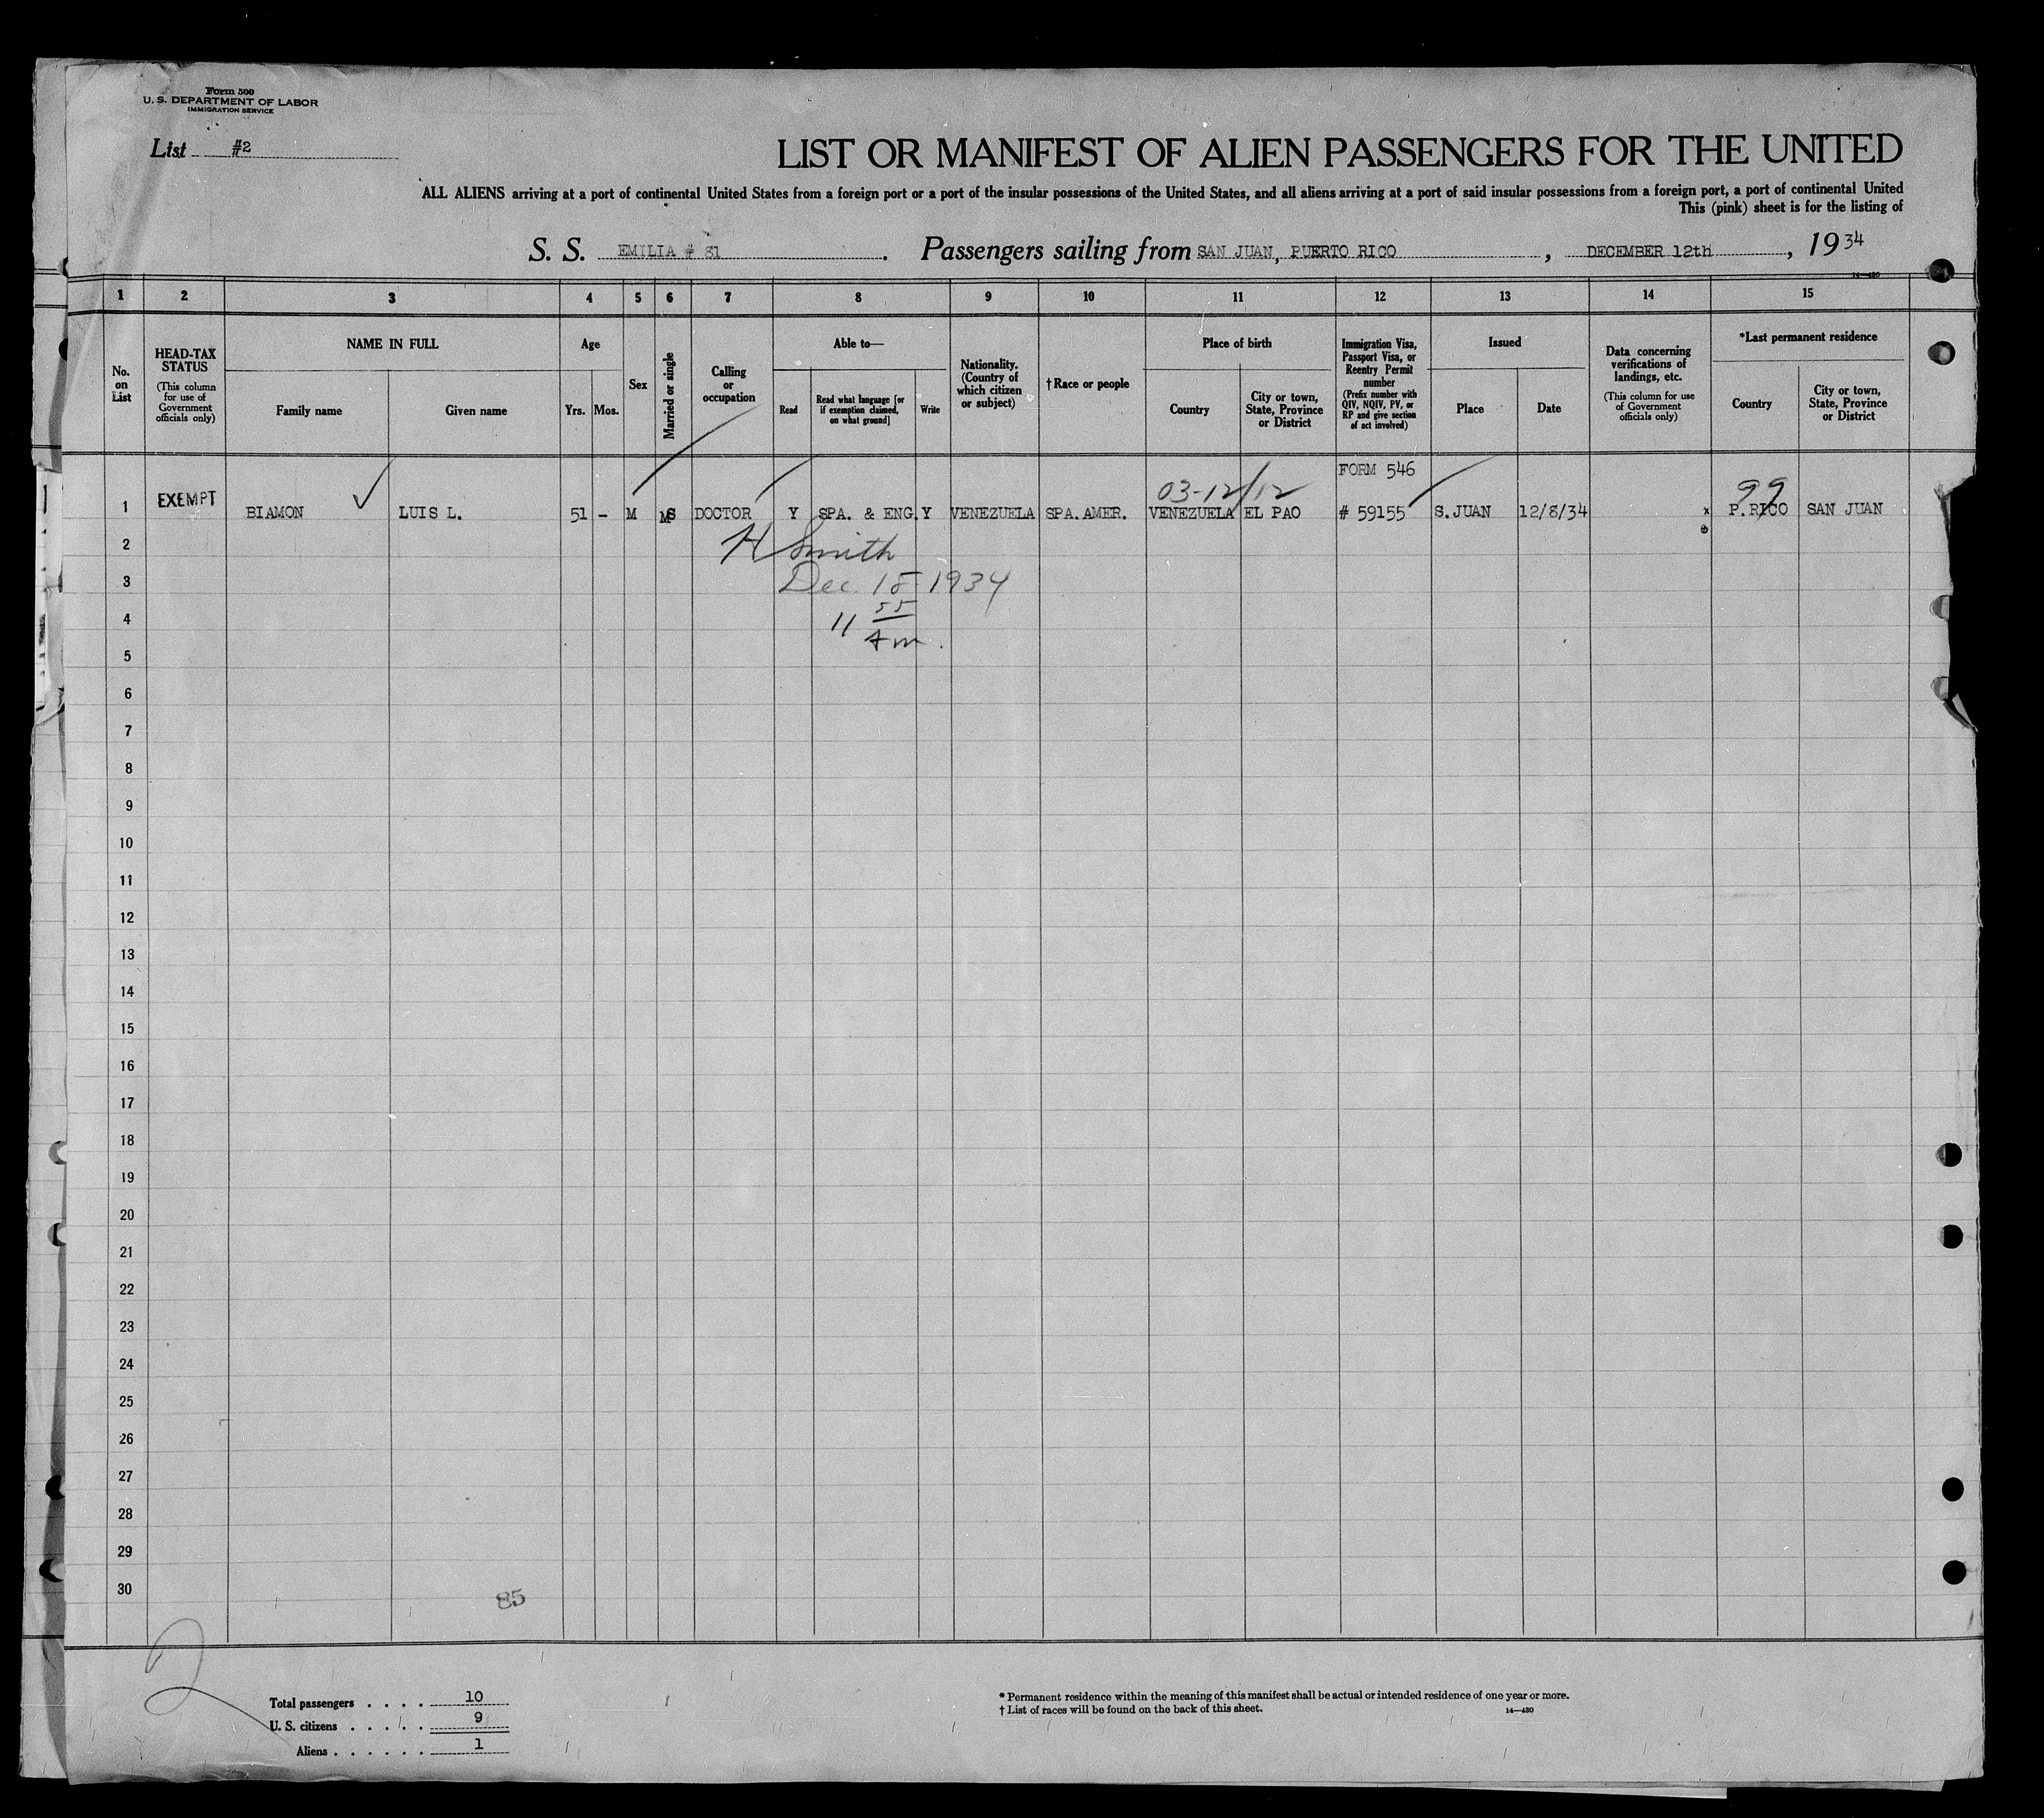 Form 500
U. S. DEPARTMENT OF LABOR
IMMIGRATION SERVICE
List #2
LIST OR MANIFEST OF ALIEN PASSENGERS FOR THE UNITED
ALL ALIENS arriving at a port of continental United States from a foreign port or a port of the insular possessions of the United States, and all aliens arriving at a port of said insular possessions from a foreign port, a port of continental United
This (pink) sheet is for the listing of
S. S. EMILIA # 81 . Passengers sailing from SAN JUAN, PUERTO RICO , DECEMBER 12th , 1934
14—430
1 2 3 4 5 6 7 8 9 10 11 12 13 14 15
No. on List
HEAD-TAX STATUS
(This column for use of Government officials only)
NAME IN FULL
Family name
Given name
Age
Yrs.
Mos.
Sex
Married or single
Calling or occupation
Able to—
Read
Read what language [or if exemption claimed, on what ground]
Write
Nationality. (Country of which citizen or subject)
† Race or people
Place of birth
Country
City or town, State, Province or District
Immigration Visa, Passport Visa, or Reentry Permit number
(Prefix number with QIV, NQIV, PV, or RP and give section of act involved)
Issued
Place
Date
Data concerning verifications of landings, etc.
(This column for use of Government officials only)
*Last permanent residence
Country
City or town, State, Province or District
FORM 546
03-12/12
99
1 EXEMPT BIAMON LUIS L. 51 - M DOCTOR Y SPA. & ENG. Y VENEZUELA SPA. AMER. VENEZUELA EL PAO # 59155 S. JUAN 12/8/34 x P. RICO SAN JUAN
2
H Smith
3
Dec. 18 1934
4
11 55
Am.
5
6
7
8
9
10
11
12
13
14
15
16
17
18
19
20
21
22
23
24
25
26
27
28
29
30
85
2
Total passengers . . . . 10
U. S. citizens . . . . . 9
Aliens . . . . . . 1
* Permanent residence within the meaning of this manifest shall be actual or intended residence of one year or more.
† List of races will be found on the back of this sheet.
14—430